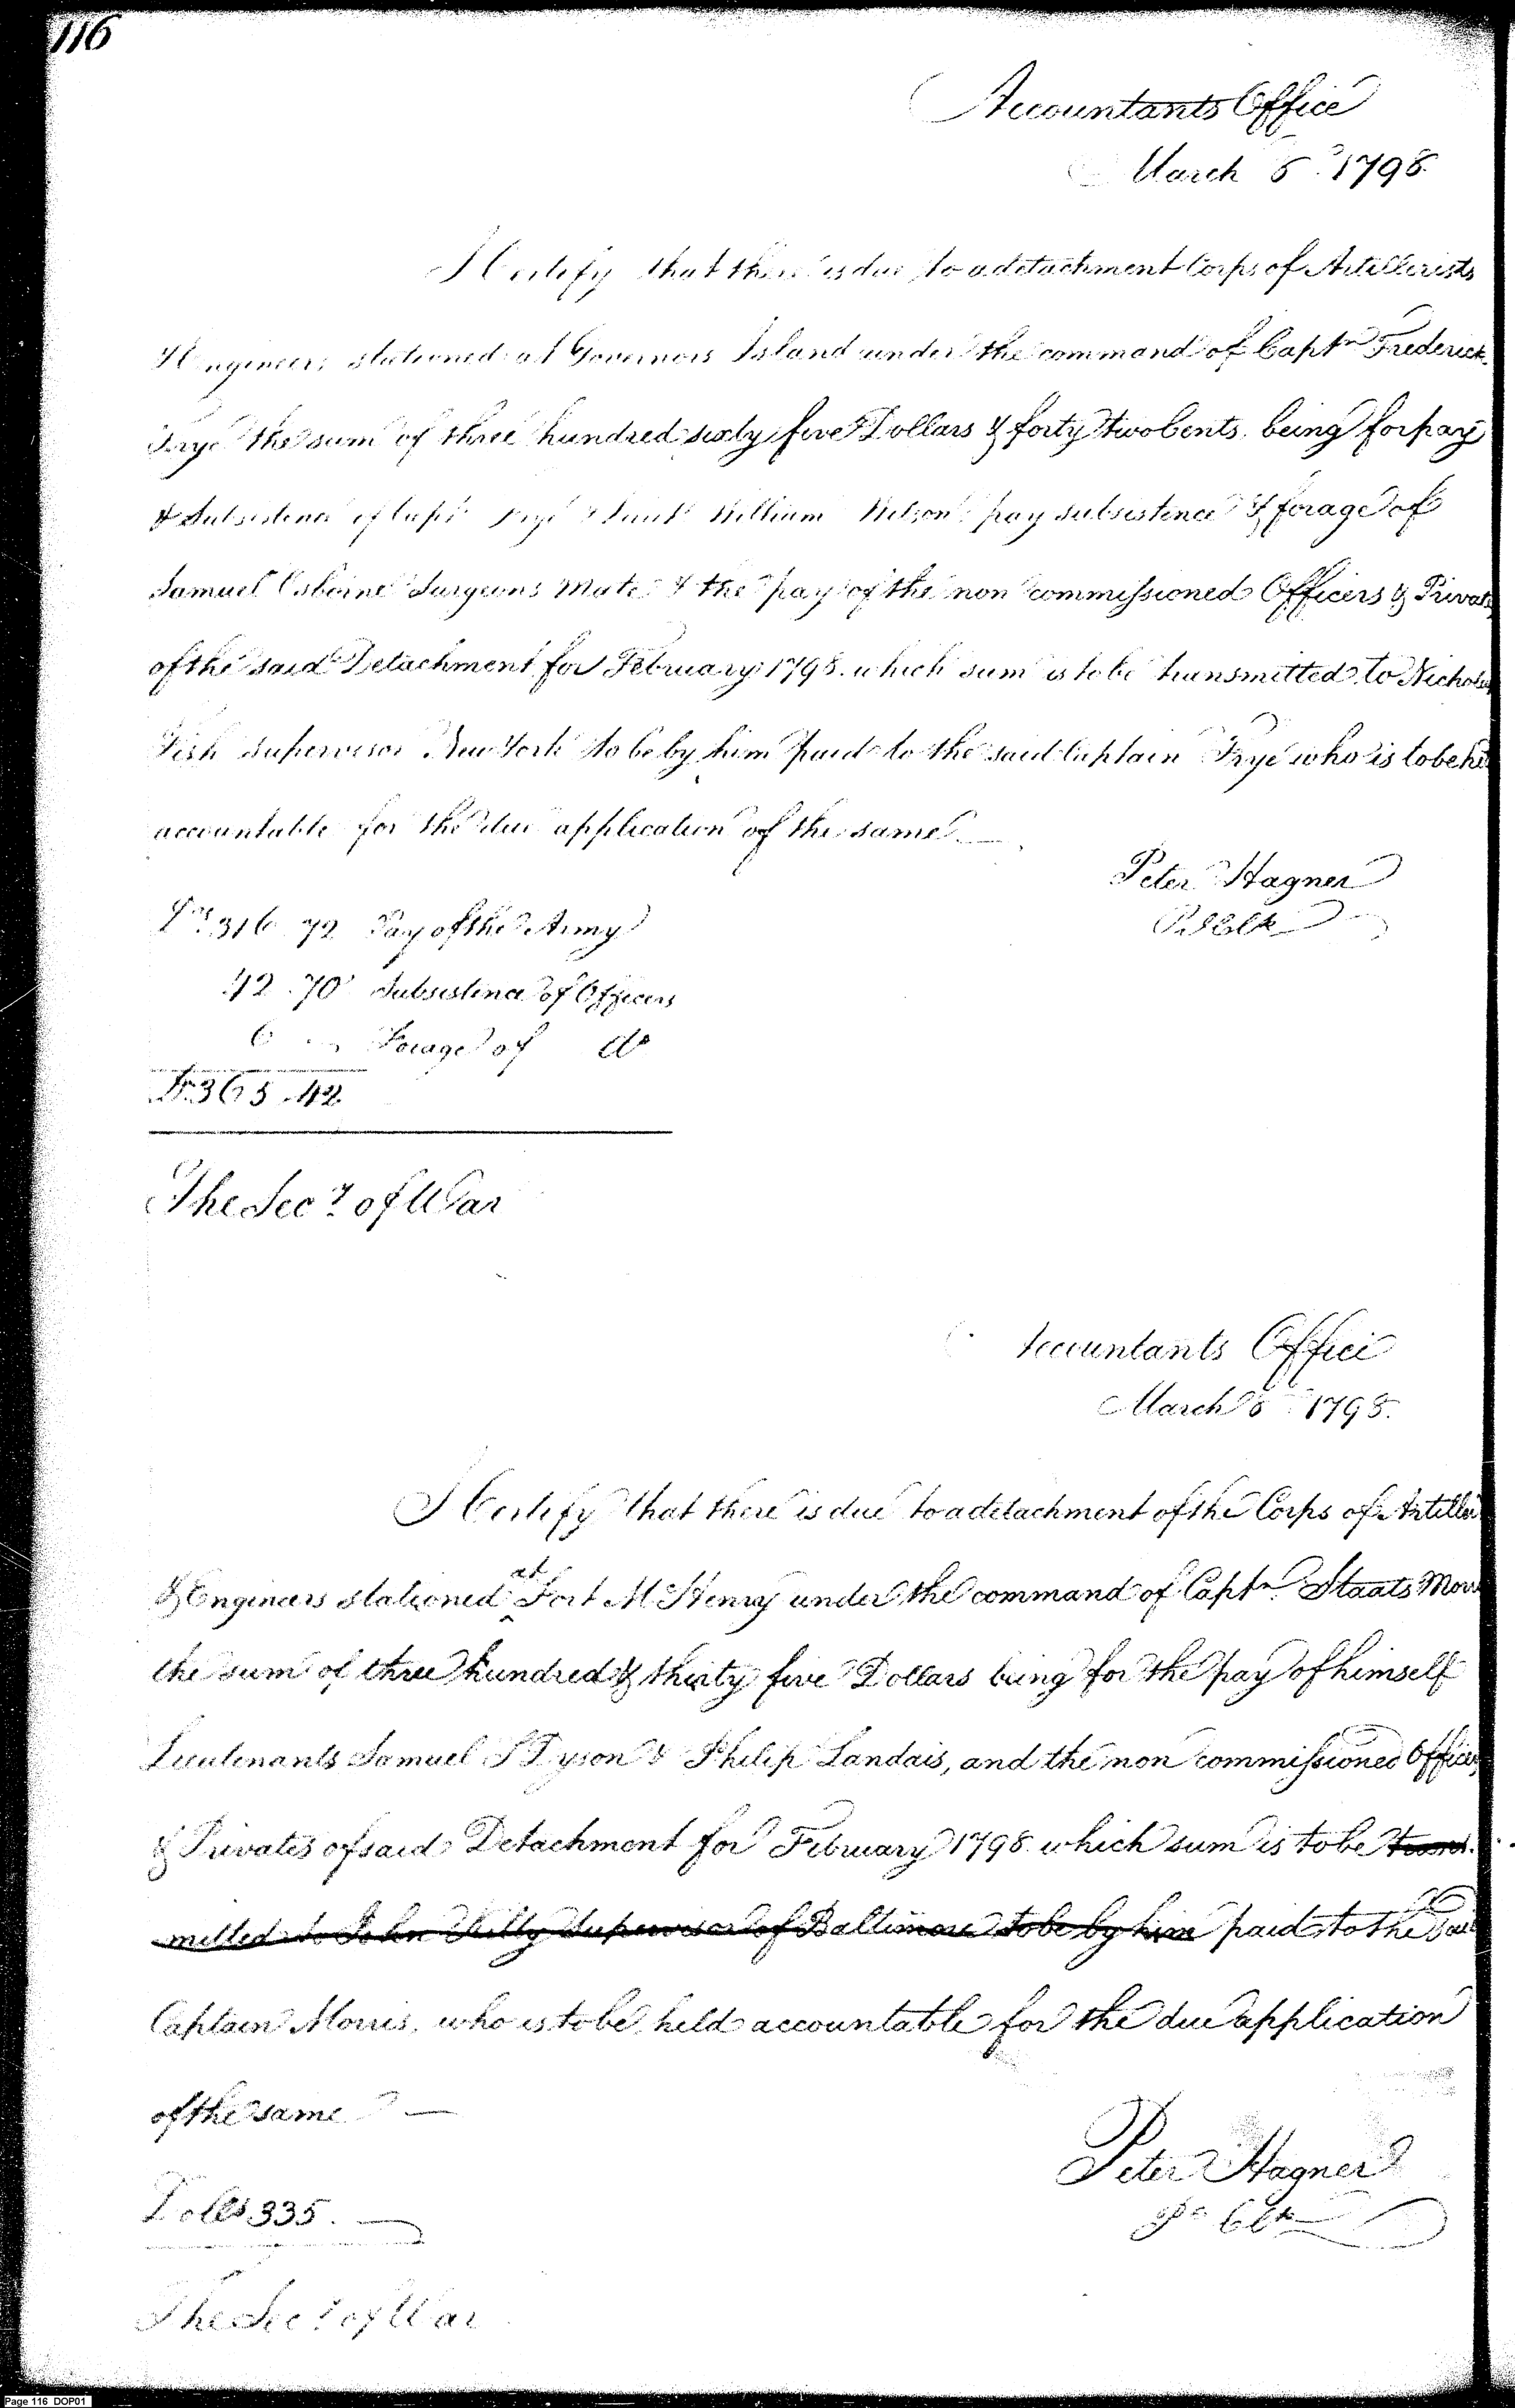 116
Accountants Office
March 6th 1798.
I Certify that there is due to a detachment Corps of Artillerists
& Engineers stationed at Governors Island under the command of Captn Frederick
Frye the sum of three hundred sixty five Dollars & forty two Cents. being for pay
& Subsistence of Capt Frye & Lieut William Wilson pay subsistence & forage of
Samuel Osborne Surgeons Mate & the pay of the non commissioned Officers & Privates
of the said Detachment for February 1798. which sum is to be transmitted to Nicholas
Fish Supervisor New York to be by him paid to the said Captain Frye who is to be he
accountable for the due application of the same
Peter Hagner
P. Clk
Drs 316 72 Pay of the Army
42.70 Subsistence of Officers
6 Forage of do
Ds 365.42
The Secy of War
Accountants Office
March 6th 1798.
I Certify that there is due to a detachment of the Corps of Artiller
& Engineers stationed at Fort McHenry under the command of Captn Staats Morr
the sum of three hundred & thirty five Dollars being for the pay of himself
Lieutenants Samuel T Dyson & Philip Landais, and the non commissioned Officers
& Privates of said Detachment for February 1798 which sum is to be trans.
mitted to John Kilty Supervisor of Baltimore to be by him paid to the said
Captain Morris, who is to be held accountable for the due application
of the same —
Peter Hagner
P. Clk
Dolls 335.
The Secy of War
Page 116 DOP01